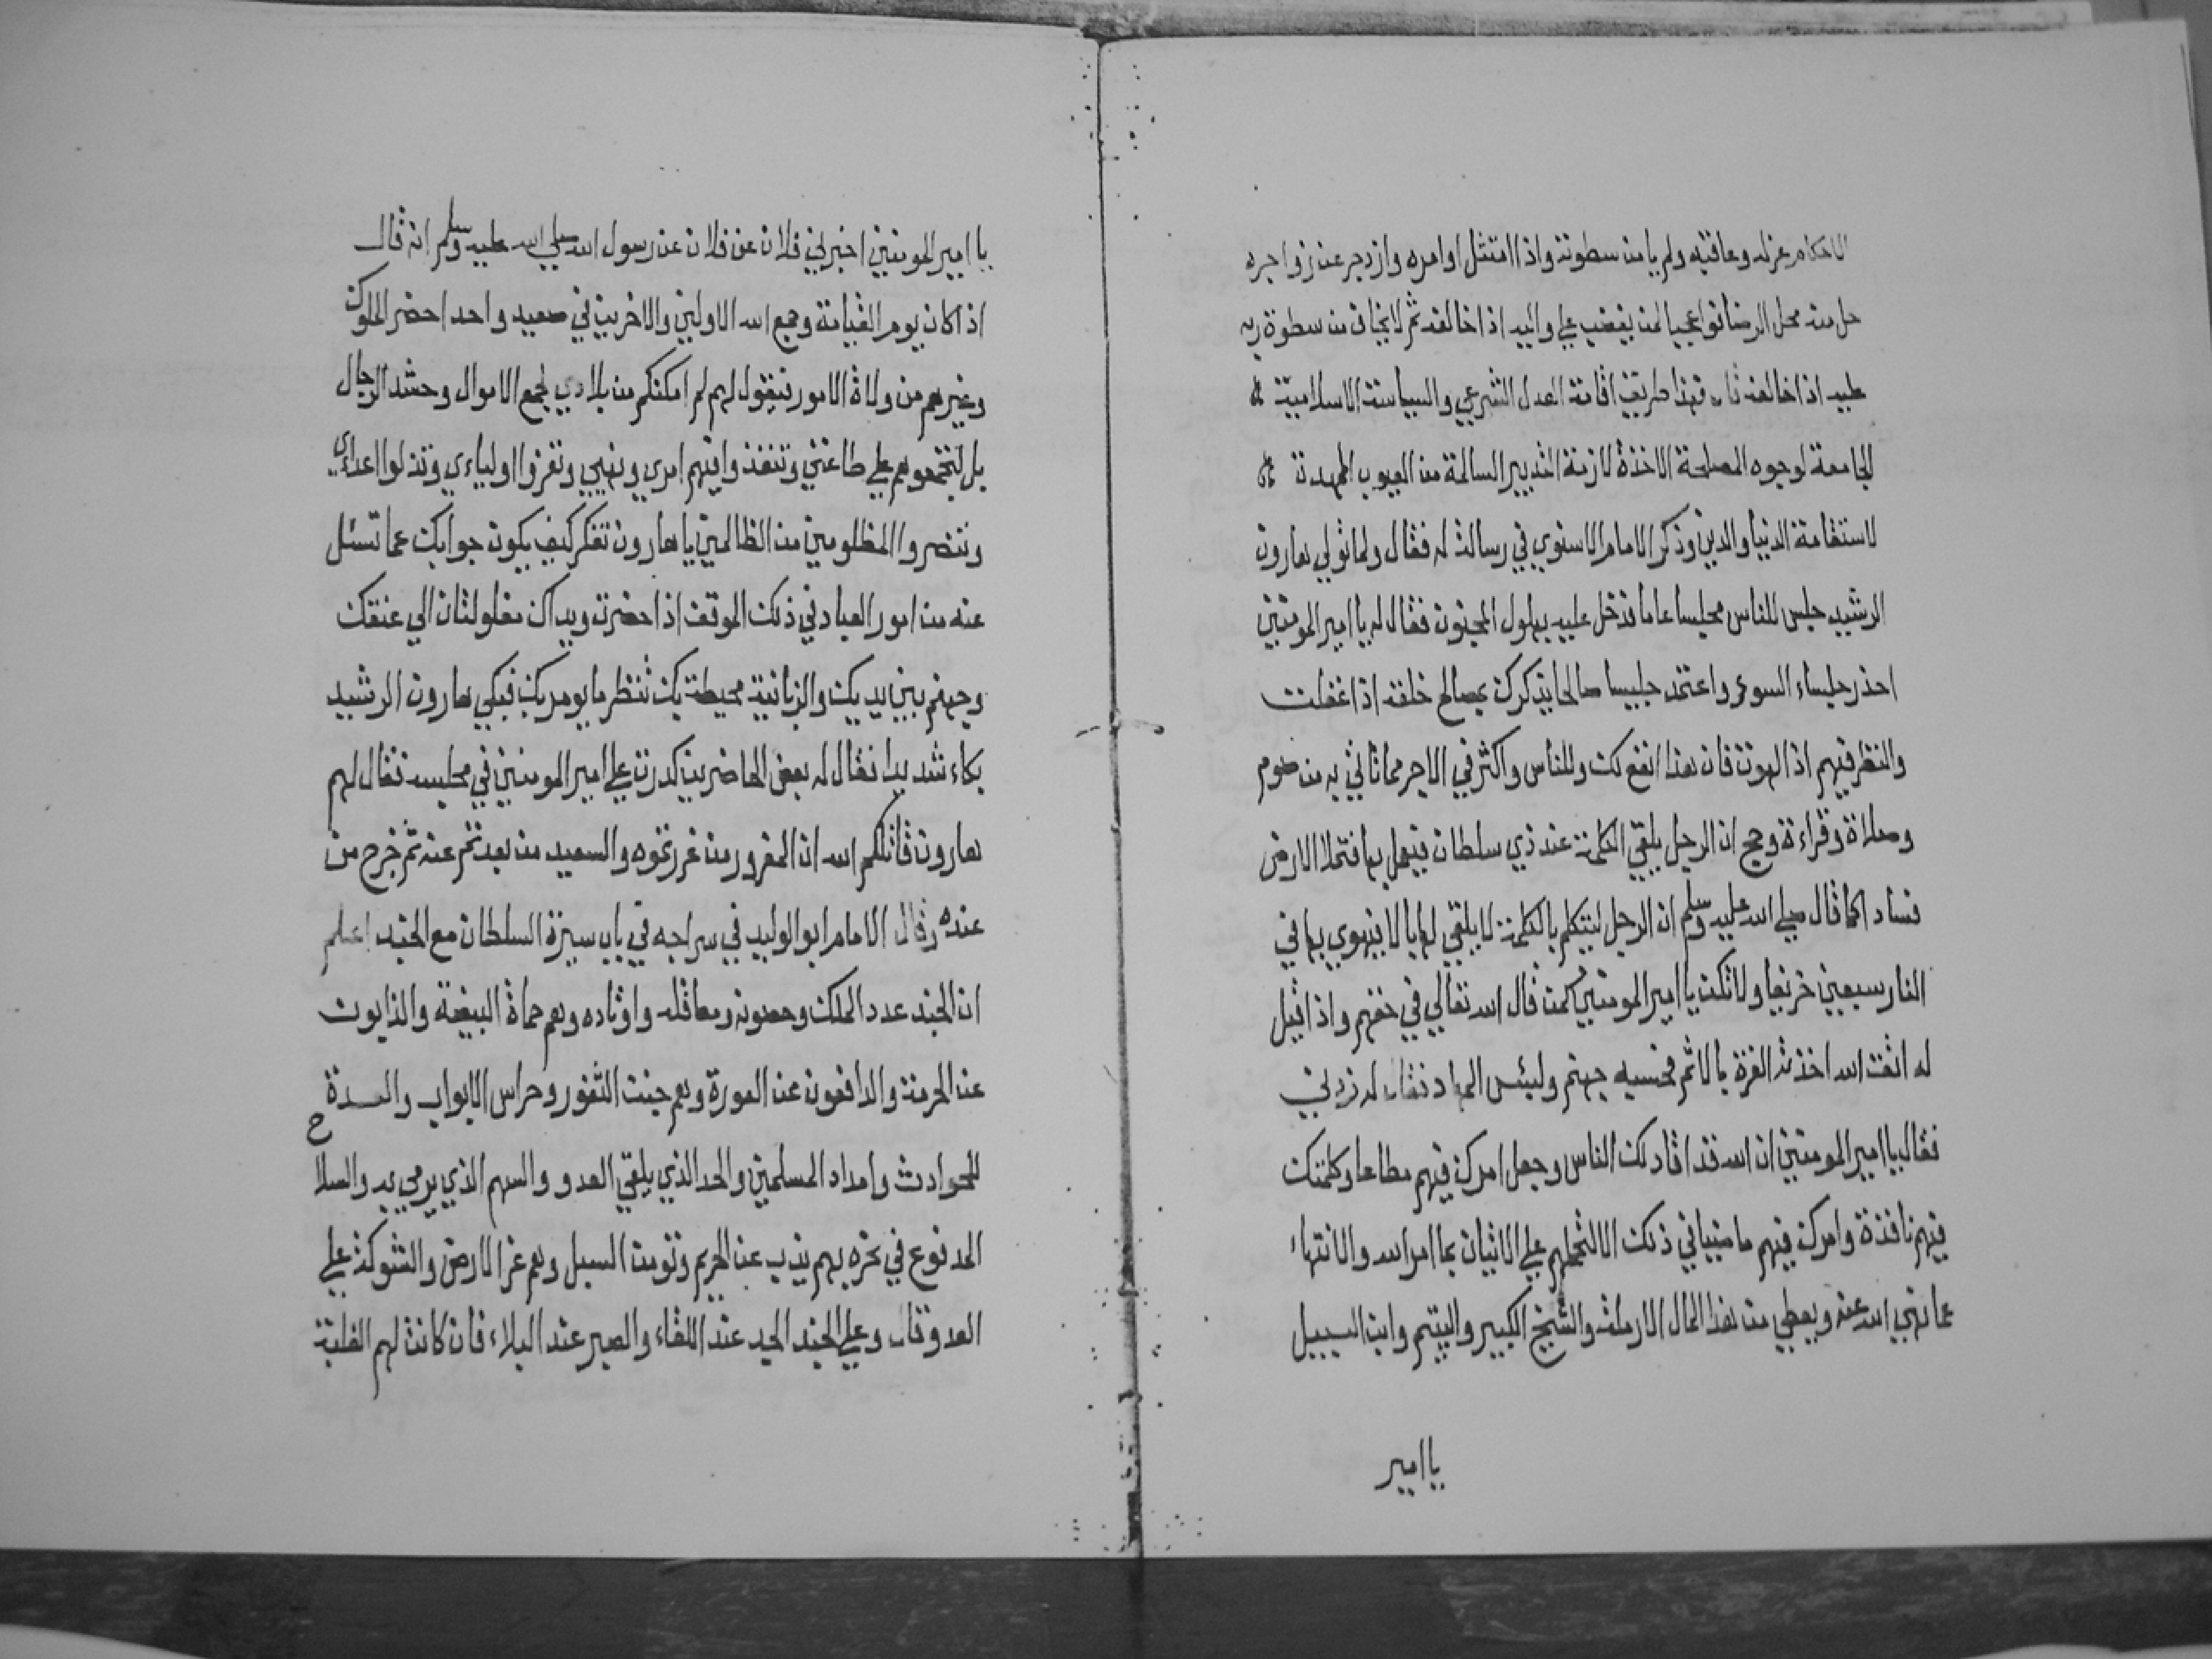 الاحكام عزله وعاقبه ولم يامن سطوته واذا امتثل اوامره وازدجر عن زواجره
حل منه محل الرضا فواعجبا لمن يغضب علي واليه اذا خالفه ثم لا يخاف من سطوة ربه
عليه اذا خالفه قال فهذا طريق اقامة العدل الشرعي والسياسة الاسلامية
الجامعة لوجوه المصلحة الاخذة لازمة التدبير السالمة من العيوب الممهدة
لاستقامة الدنيا والدين وذكر الامام الاسنوي في رسالة له فقال ولما تولي هارون
الرشيد جلس للناس مجلسا عاما فدخل عليه بهلول المجنون فقال له يا امير المومنين
احذر جلساء السوء واعتمد جليسا صالحا يذكرك بمصالح خلقه اذا غفلت
والنظر فيهم اذا لهوت فان هذا انفع لك وللناس واكثر في الاجر مما تاتي به من صوم
وصلاة وقراءة وحج ان الرجل يلقي الكلمة عند ذي سلطان فيعمل بها فتملا الارض
فسادا كما قال صلي الله عليه وسلم ان الرجل ليتكلم بالكلمة لا يلقي لها بالا يهوي بها في
النار سبعين خريفا ولا تكن يا امير المومنين كمن قال الله تعالي في حقهم واذا قيل
له اتق الله اخذته العزة بالاثم فحسبه جهنم ولبئس المهاد فقال له زدني
فقال يا امير المومنين ان الله قد اقاد لك الناس وجعل امرك فيهم مطاعا وكلمتك
فيهم نافذة وامرك فيهم ماضيا في ذلك الا لتحملهم علي الاتيان بما امر الله والانتهاء
عما نهي الله عنه ويعطي من هذا المال الارملة والشيخ الكبير واليتيم وابن السبيل
يا امير
يا امير المومنين اخبرني فلان عن فلان عن رسول الله صلي الله عليه وسلم انه قال
اذا كان يوم القيامة وجمع الله الاولين والاخرين في صعيد واحد احضر الملوك
وغيرهم من ولاة الامور فيقول لهم لم امكنكم من بلادي لجمع الاموال وحشد الرجال
بل لتجمعوهم علي طاعتي وتنفذوا فيهم امري ونهيي وتعزوا اولياءي وتذلوا اعداي
وتنصروا المظلومين من الظالمين يا هارون تفكر كيف يكون جوابك عما تسئل
عنه من امور العباد في ذلك الموقف اذا حضرت ويداك مغلولتان الي عنقك
وجهنم بين يديك والزبانية محيطة بك تنتظر ما يومر بك فبكي هارون الرشيد
بكاء شديدا فقال له بعض الحاضرين كدرت علي امير المومنين في مجلسه فقال لهم
هارون قاتلكم الله ان المغرور من غررتموه والسعيد من بعدتم عنه ثم خرج من
عنده وقال الامام ابو الوليد في سراجه في باب سيرة السلطان مع الجند اعلم
ان الجند عدد الملك وحصونه ومعاقله واوتاده وهم حماة البيضة والذابون
عن الحرمة والدافعون عن العورة وهم جنن الثغور وحراس الابواب والعدة
للحوادث وامداد المسلمين والحد الذي يلقي العدو والسهم الذي يرمي به والسلاح
المدفوع في نحره بهم يذب عن الحريم وتومن السبل وهم عز الارض والشوكة علي
العدو قال وعلي الجند الجد عند اللقاء والصبر عند البلاء فان كانت لهم الغلبة